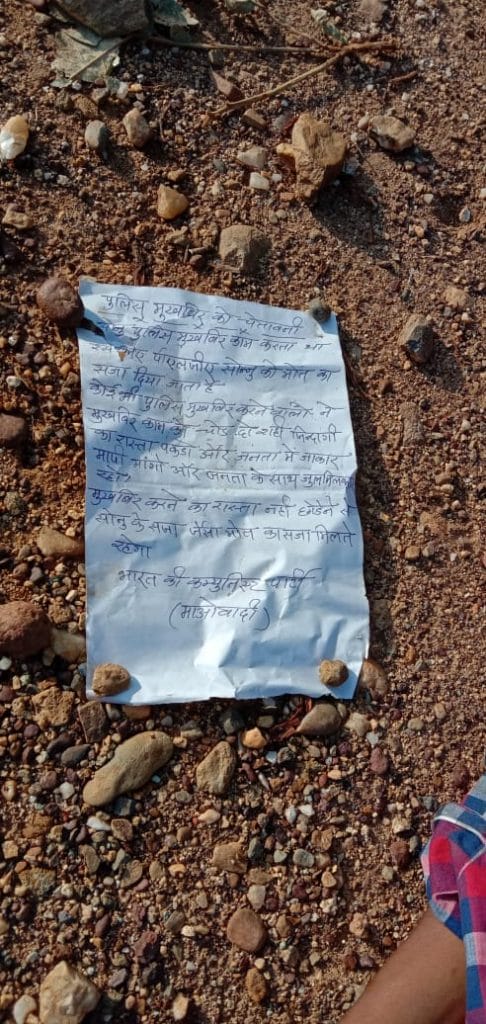 पुलिस मुखबिर को चेतावनी
सोनु पुलिस मुखबिर काम करता था
इस लिए पीएलजीए सोनु को मौत का
सजा दिया जाता है
कोई भी पुलिस मुखबिर करने वालो ने
मुखबिर काम को छोड़ दो सही जिन्दागी
का रास्ता पकडो और जनता मे जाकार
मापी मांगो और जनता के साथ जुलमिलकर
रहो
मुखबिर करने का रास्ता नही छोडेने से
सोनु के सजा जैसा मौत का सजा मिलते
रहेगा
भारत की कम्युनिस्ट पार्टी
(माओवादी)